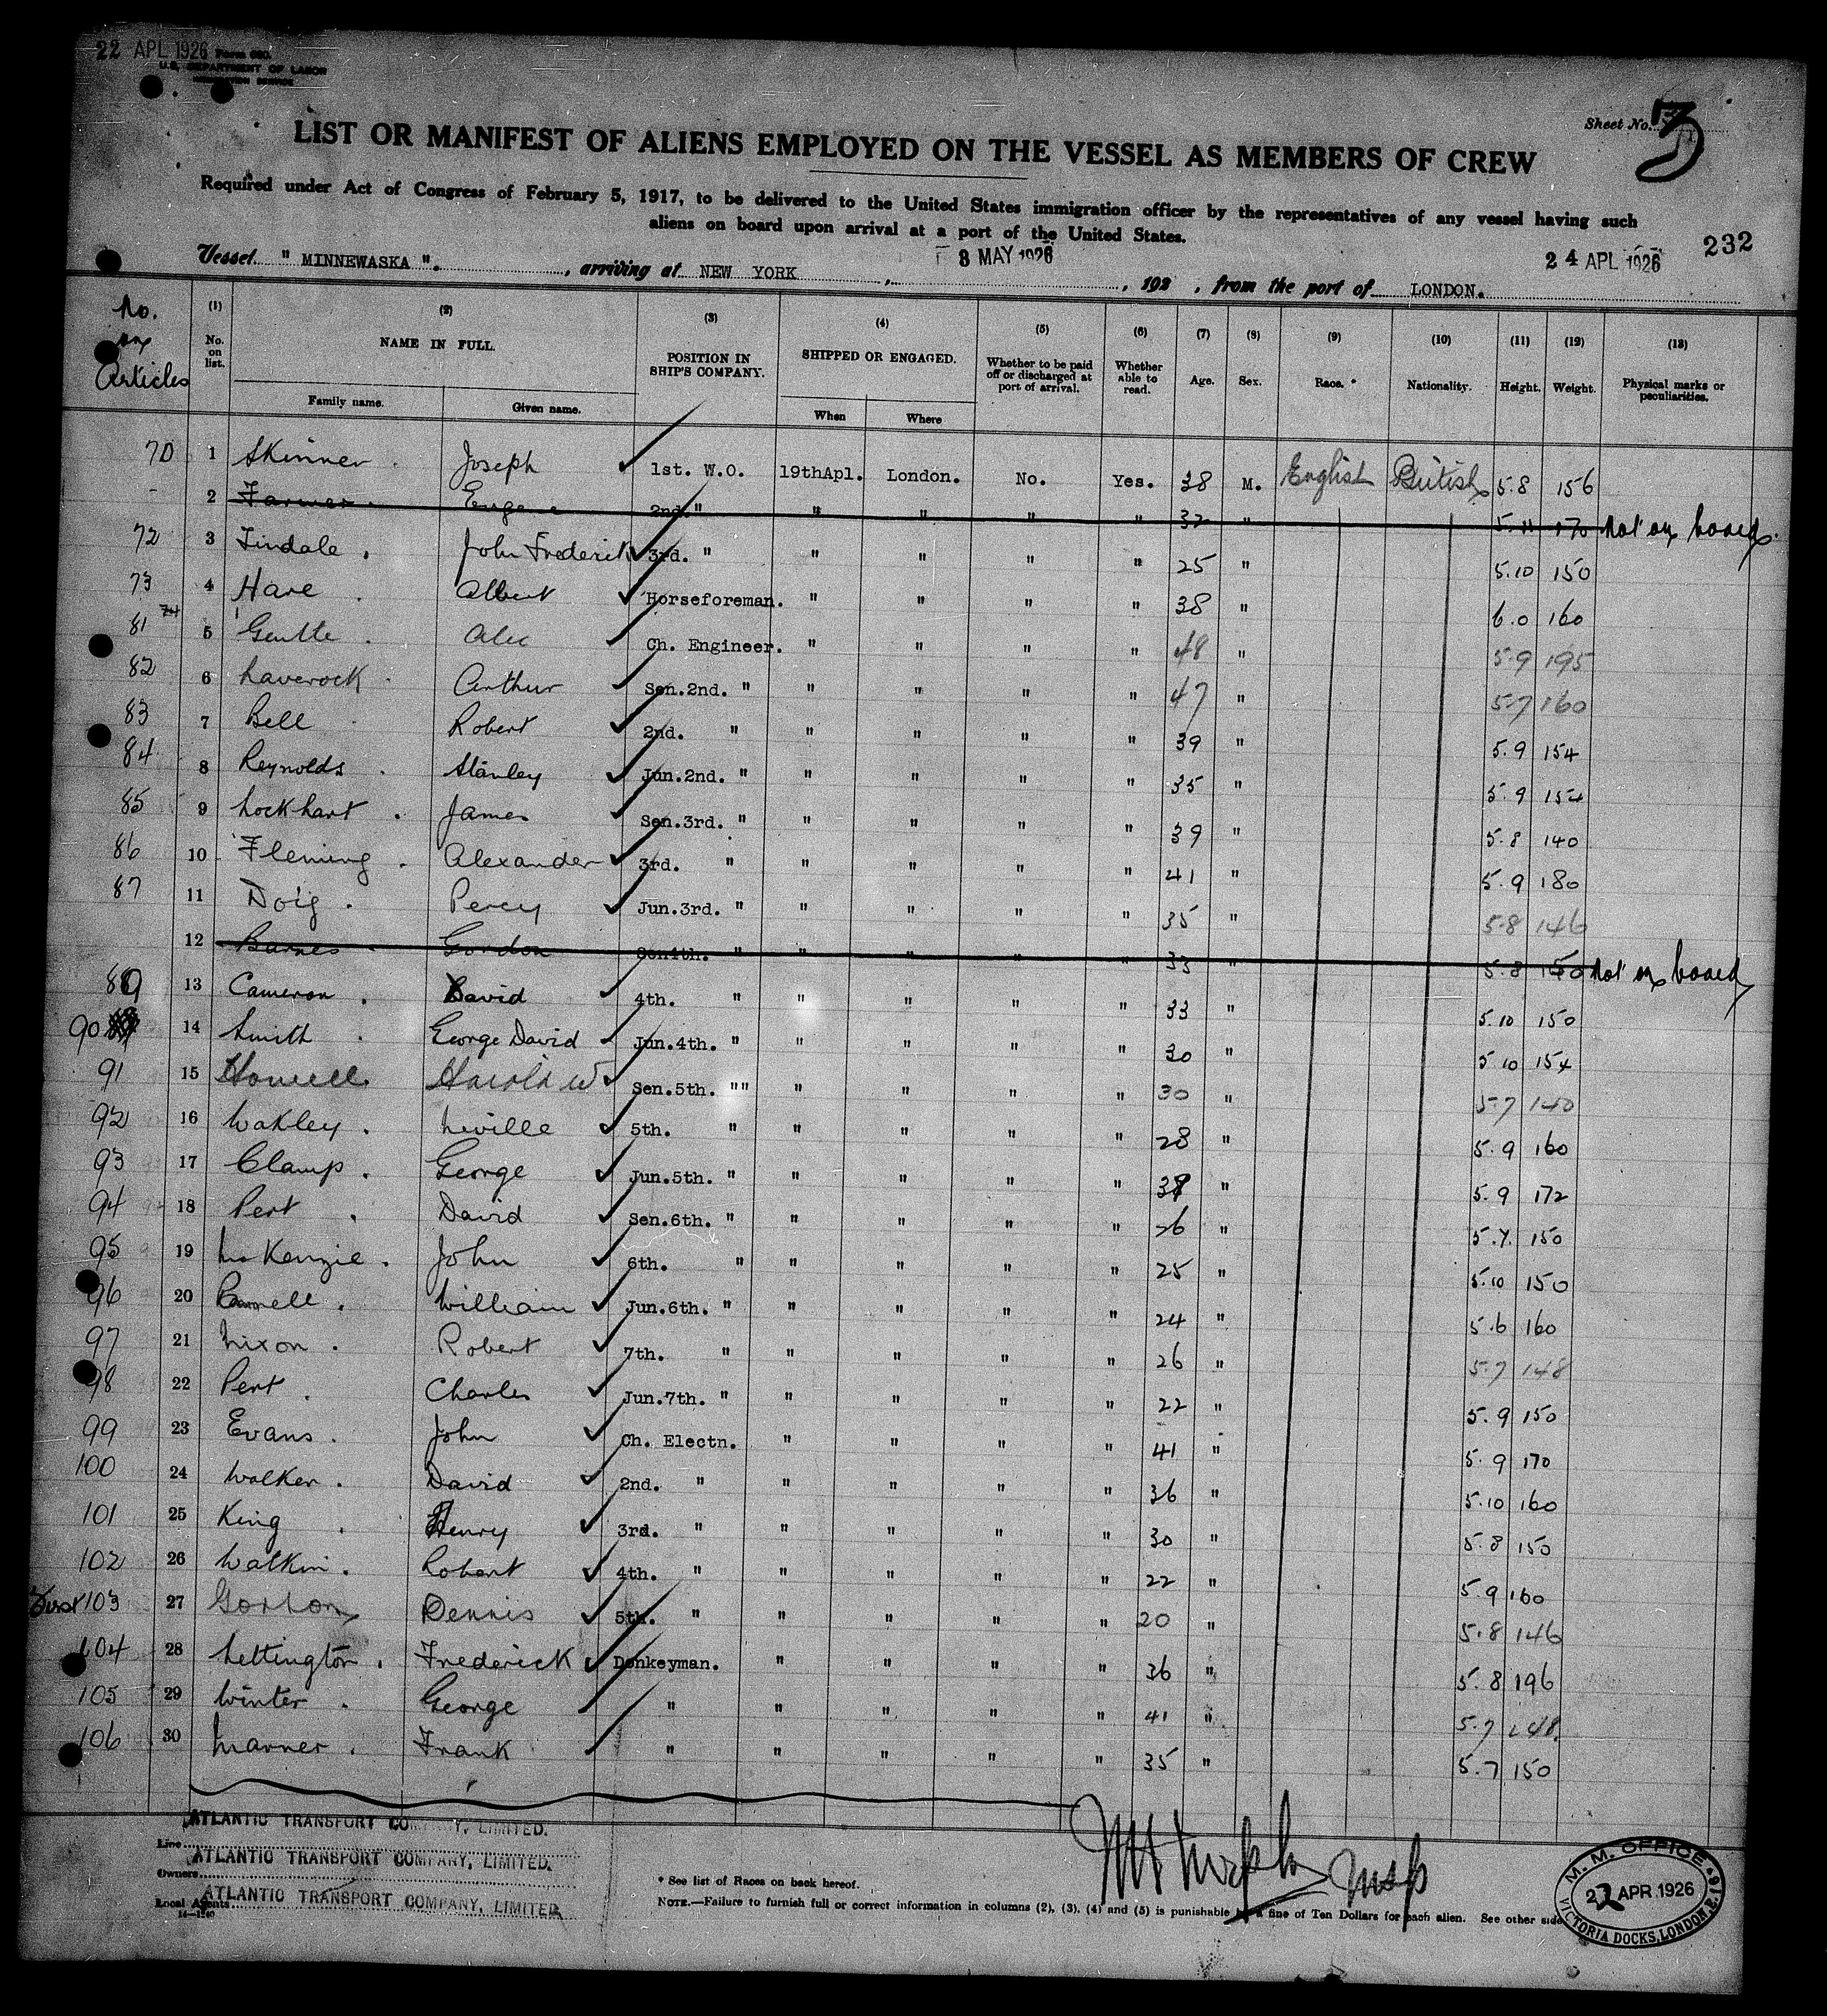 22 APL 1926 Form 680
U.S. DEPARTMENT OF LABOR
IMMIGRATION SERVICE
Sheet No. 3
LIST OR MANIFEST OF ALIENS EMPLOYED ON THE VESSEL AS MEMBERS OF CREW
Required under Act of Congress of February 5, 1917, to be delivered to the United States immigration officer by the representatives of any vessel having such
aliens on board upon arrival at a port of the United States.
232
Vessel " MINNEWASKA ". , arriving at NEW YORK , 3 MAY 1926 , 192 , from the port of LONDON. 24 APL 1926
No. on Articles (1) No. on list. (2) NAME IN FULL. Family name. Given name. (3) POSITION IN SHIP'S COMPANY. (4) SHIPPED OR ENGAGED. When Where (5) Whether to be paid off or discharged at port of arrival. (6) Whether able to read. (7) Age. (8) Sex. (9) Race. * (10) Nationality. (11) Height. (12) Weight. (13) Physical marks or peculiarities.
70 1 Skinner . Joseph 1st. W.O. 19thApl. London. No. Yes. 38 M. English British 5 8 156
- 2 Farmer . Eugene 2nd." " " " " 32 " 5. 11 170 Not on board.
72 3 Tindale . John Frederick 3rd. " " " " " 25 " 5.10 150
73 4 Hare . Albert Horseforeman. " " " " 38 " 6.0 160
81 74 5 Gentle . Alec Ch. Engineer. " " " " 48 " 5.9 195
82 6 Laverock . Arthur Sen.2nd. " " " " " 47 " 5.7 160
83 7 Bell Robert 2nd. " " " " " 39 " 5.9 154
84 8 Reynolds . Stanley Jun.2nd. " " " " " 35 " 5.9 154
85 9 Lockhart . James Sen.3rd. " " " " " 39 " 5.8 140
86 10 Fleming . Alexander 3rd. " " " " " 41 " 5.9 180
87 11 Doig . Percy Jun.3rd. " " " " " 35 " 5.8 146
12 Barnes . Gordon Sen4th. " " " " " 33 " 5.8 150 Not on board
89 13 Cameron . David 4th. " " " " " 33 " 5.10 150
90 14 Smith . George David Jun.4th. " " " " " 30 " 5.10 154
91 15 Howell Harold W Sen.5th. "" " " " " 30 " 5.7 140
92 16 Wakley . Neville 5th. " " " " " 28 " 5.9 160
93 17 Clamp . George Jun.5th. " " " " " " 5.9 172
94 18 Pert . David Sen.6th. " " " " " 26 " 5.7. 150
95 19 McKenzie . John 6th. " " " " " 25 " 5.10 150
96 20 William Jun.6th. " " " " " 24 " 5.6 160
97 21 Nixon . Robert 7th. " " " " " 26 " 5.7 148
98 22 Pert . Charles Jun.7th. " " " " " 22 " 5.9 150
99 23 Evans . John Ch. Electn. " " " " 41 " 5.9 170
100 24 Walker . David 2nd. " " " " " 36 " 5.10 160
101 25 King . Henry 3rd. " " " " " 30 " 5.8 150
102 26 Watkin . Robert 4th. " " " " " 22 " 5.9 160
First 103 27 Gorton Dennis 5th. " " " " " 20 " 5.8 146
104 28 Lettington . Frederick Donkeyman. " " " " 36 " 5.8 196
105 29 Winter . George " " " " " 41 " 5.7 148.
106 30 Marner . Frank " " " " " 35 " 5.7 150
Line ATLANTIC TRANSPORT COMPANY, LIMITED.
Owners ATLANTIC TRANSPORT COMPANY, LIMITED.
Local Agents ATLANTIC TRANSPORT COMPANY, LIMITED
14—1240
* See list of Races on back hereof.
NOTE.—Failure to furnish full or correct information in columns (2), (3), (4) and (5) is punishable by a fine of Ten Dollars for each alien. See other side
M. M. OFFICE
22 APR 1926
VICTORIA DOCKS, LONDON, E.16